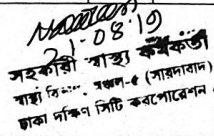 21.08.19
সহকারী স্বাস্থ্য কর্মকর্তা
স্বাস্থ্য বি.... অঞ্চল-৫ (সায়দাবাদ)
ঢাকা দক্ষিণ সিটি করপোরেশন।